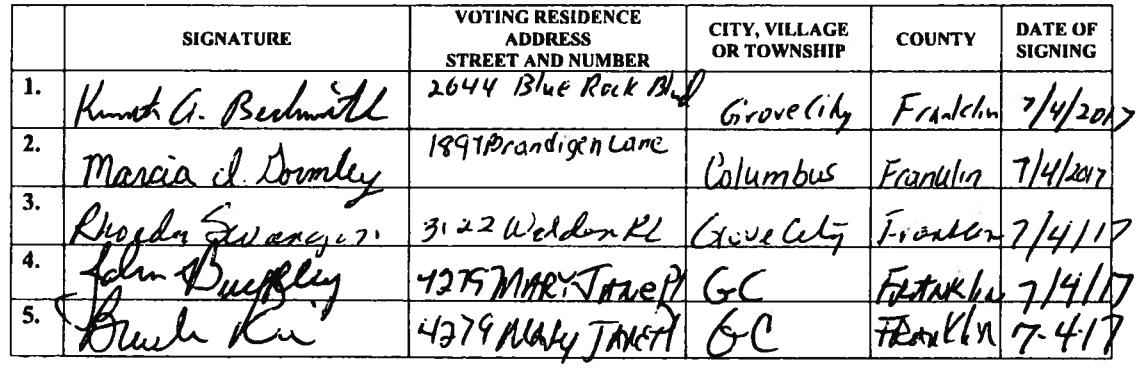 SIGNATURE VOTING RESIDENCE ADDRESS STREET AND NUMBER CITY, VILLAGE OR TOWNSHIP COUNTY DATE OF SIGNING
1. Kenneth A. Beckwith 2644 Blue Rock Blvd Grove City Franklin 7/4/2017
2. Marcia J. Gormley 1897 Brandigen Lane Columbus Franklin 7/4/2017
3. Rhonda 3122 Weldon Pl Grove City Franklin 7/4/17
4. John 4279 MARY JANE Pl GC FRANKlin 7/4/17
5. 4279 MARY JANE Pl GC FRANKlin 7-4-17